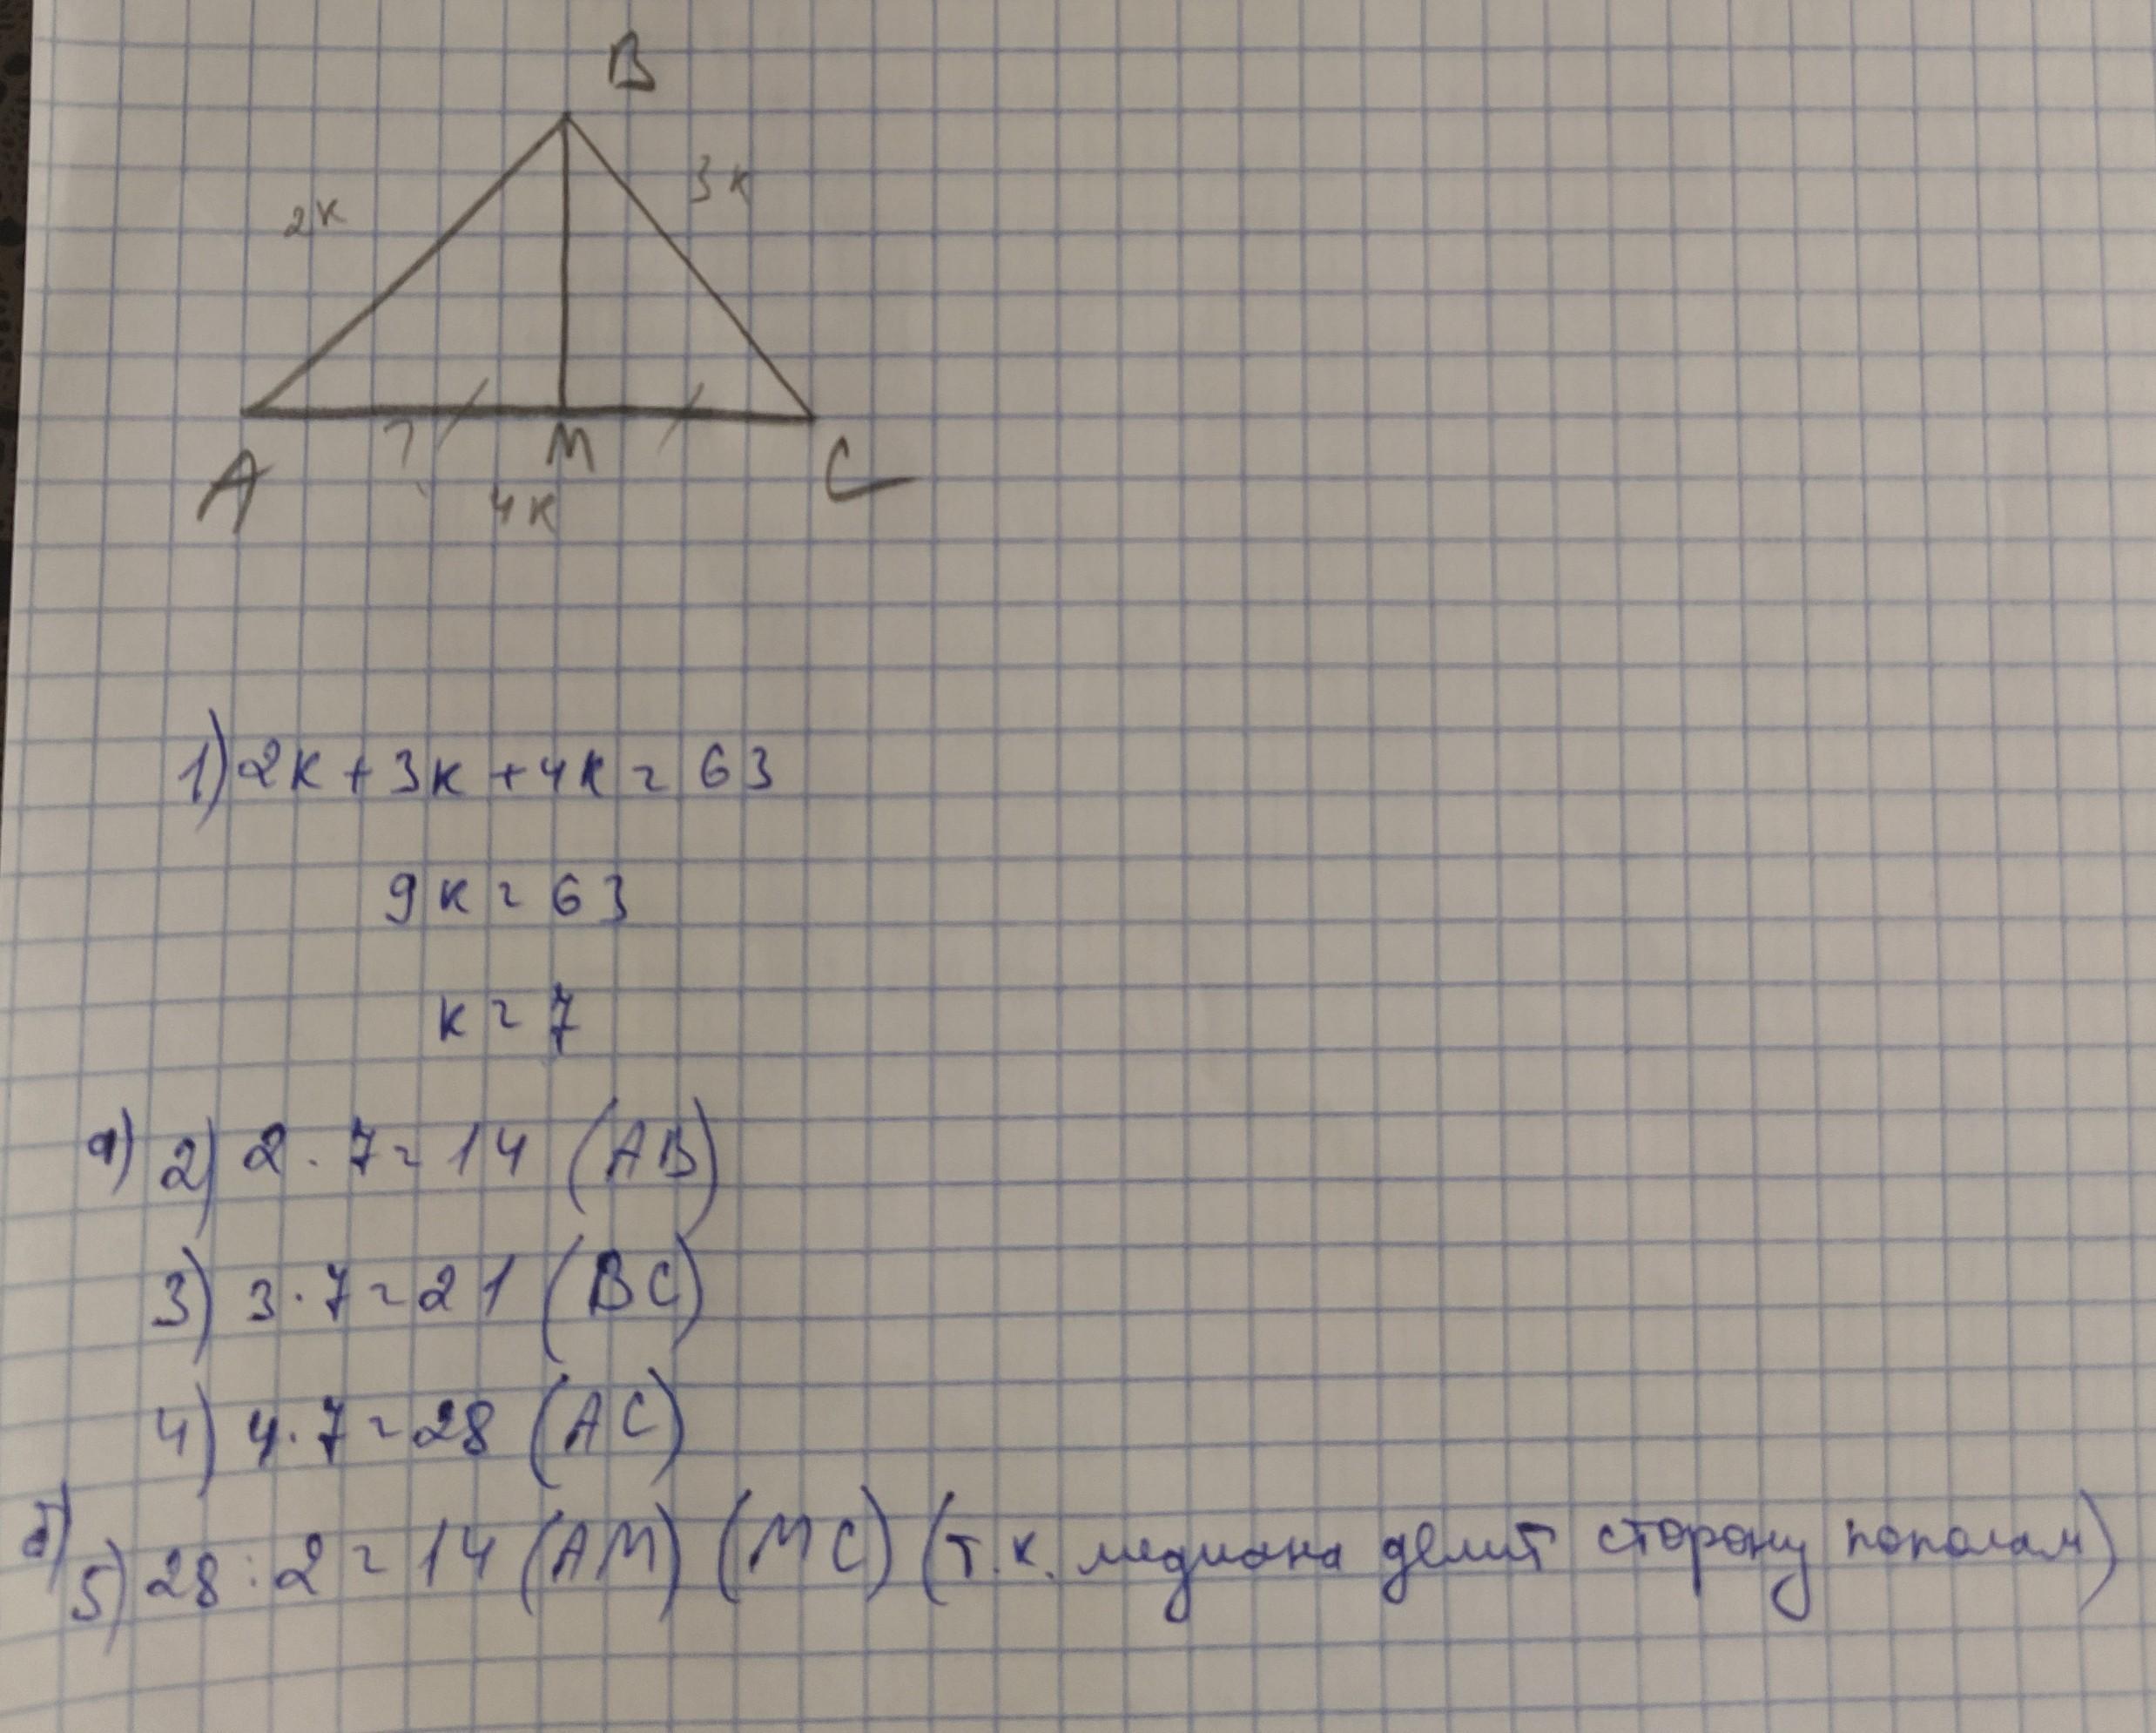 B
2к
3к
?
M
A
C
4к
1) 2к + 3к + 4к = 63
9к = 63
к = 7
а) 2) 2 · 7 = 14 (AB)
3) 3 · 7 = 21 (BC)
4) 4 · 7 = 28 (AC)
б) 5) 28 : 2 = 14 (AM) (MC) (т.к. медиана делит сторону пополам)